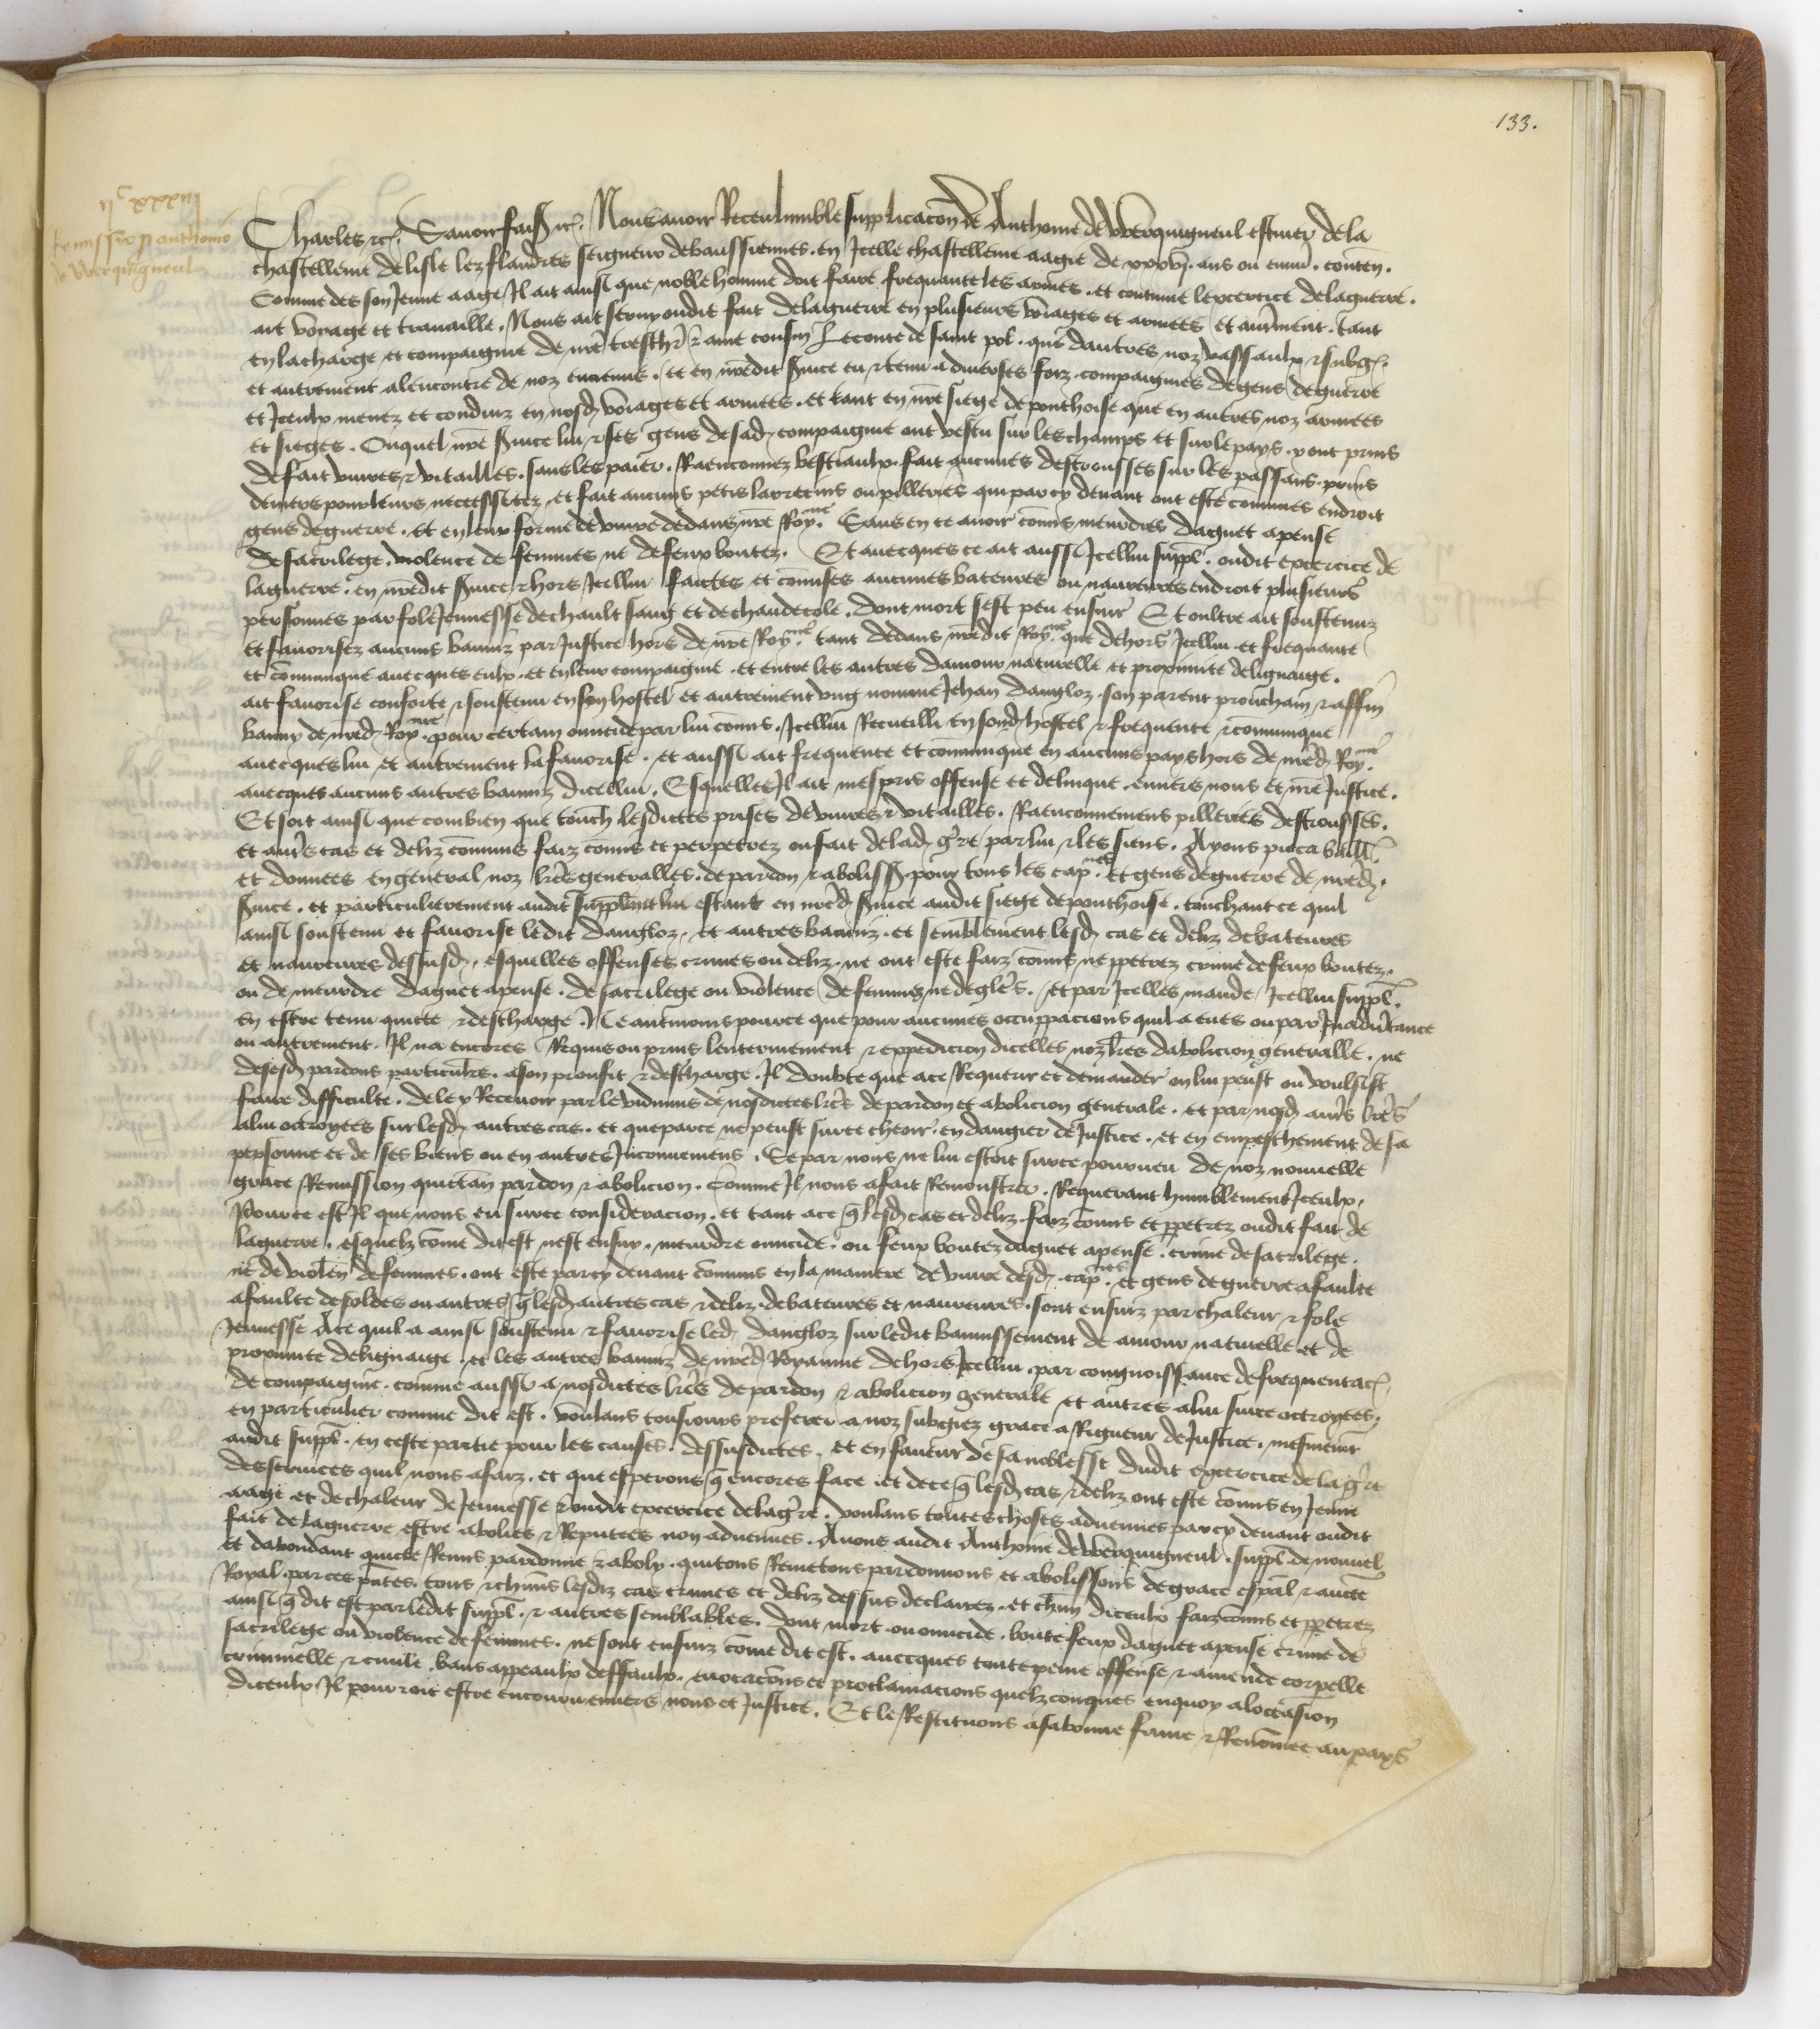 133.
ijc xxxiij
Remissio pro anthonio
de Werquigneul
Charles etc. Savoir faiss etc. Nous avoir Receu lumble supplicacon de Anthoine de Werquigneul escuier de la
chastellenie de lisle lez flandres seigneur de baussiennes. en Icelle chastellenie aagie de xxxvj. ans ou enuir. conten.
Comme des son Jeune aage Il ait ainsi que noble homme doit faire frequante les armes. et continue lexcercice de la guerre.
ait voyage et travaille. Nous ait servy oudit fait de la guerre en plusieurs voiages et armees et autrement. tant
en la charge et compaignie de nre treschr et ame cousin Le conte de saint pol. que dautres noz vassaulx et subgs.
et autrement alencontre de noz ennemis. et en nredit service eu et tenu a diverses foiz compaignies de gens de guerre
et Iceulx menez et conduiz en nosd voiages et armees. et tant en nre siege de ponthoise que en autres noz armees
et sieges. Ouquel nre service lui et ses gens de sad compaignie ont vescu sur les champs et sur le pays. y ont prins
de fait vivres et vitailles. sans les paier. Raenconnez bestiaulx. fait aucunes destrousses sur les passans. prins
denrees pour leurs necessitez et fait aucuns petis larrecins ou pilleries qui par cy devant ont este communes endroit
gens de guerre. et en leur forme de vivre dedans nre Roy.me Sans en ce avoir comis meurdres daguet apense
de sacrilege. violence de femmes ne de feux boutez. Et avecques ce ait aussi Icellui suppl. oudit excercice de
la guerre. en nredit service et hors Icellui faictes et comises aucunes bateures ou navreures endroit plusieurs
personnes par fole Jeunesse de chault sang et de chaudecole. dont mort sest peu ensuir Et oultre ait soustenuz
et favorisez aucuns banniz par Justice hors de nre Roy.me tant dedans nredit Roy.me que dehors Icellui et frequante
et communique avecques eulx. et en leur compaignie. et entre les autres damour naturelle et proximite de lignaige.
ait favorise conforte et soustenu en son hostel et autrement ung nomme Jehan dangloz. son parent prouchain et affin
banny de nred Roy.me pour certain omicide par lui comis. Icellui Recueilli en sond hostel et frequente et communique
avecques lui et autrement la favorise. et aussi ait frequente et communique en aucuns pays hors de nred Roy.me
avecques aucuns autres banniz dicellui. Esquelles Il ait mespris offense et delinque. envers nous et nre Justice.
Et soit ainsi que combien que touch. lesdictes prises de vivres et vitailles. Raenconnemens pilleries destrousses.
et autres cas et deliz communs faiz comis et perpetrez ou fait de lad gre par lui et les siens. Ayons pieca baill.
et donnees en general noz lres generalles. de pardon et aboliss. pour tous les cap.nes et gens de guerre de nred
service. et particulierement audit suppliant lui estant en nred service audit siege de ponthoise. touchant ce quil
ainsi soustenu et favorise ledit dangloz. et autres banniz. et semblement lesd cas et deliz de bateures
et navreures dessusd. esquelles offenses crimes ou deliz. ne ont este faiz comis ne ppetrez crime de feux boutez.
ou de meurdre daguet apense. de sacrilege ou violence de femmes ne degles. et par Icelles mande Icellui suppl.
en estre tenu quicte et descharge. Neantmoins pource que pour aucunes occuppacions quil a eues ou par Inadvertance
ou autrement. Il na encores Requis ou prins lenterinement et expedicion dicelles noz lres dabolicion generalle. ne
desesd pardons particulers. a son proufit et descharge. Il doubte que a ce Requerir et demander on lui peust ou voulsist
faire difficulte. de le y Recevoir par le vidimus de nosdictes lres de pardon et abolicion generale. et par nosd autres lres
a lui octroyees sur lesd autres cas. et que par ce ne peust sur ce cheoir. en dangier de Justice. et en empeschement de sa
personne et de ses biens ou en autres Inconveniens. Se par nous ne lui estoit sur ce pourveu de noz nouvelle
grace Remission quictan pardon et abolicion. Comme Il nous a fait Remonstrer. Requerant humblement Iceulx.
Pource est Il que nous eu sur ce consideracion. et tant a ce q lesd cas et deliz faiz comis et ppetrez oudit fait de
la guerre. esquelz come dit est nest ensuy. meurdre omicide. ou feux boutez daguet apense. crime de sacrilege.
ne de violen de femmes. ont este par cy devant comuns en la maniere de vivre desd. cap.nes et gens de guerre a faulte
a faulte de soldes ou autres q lesd autres cas et deliz. de bateures et navreures. sont ensuiz par chaleur et fole
Jeunesse Ace quil a ainsi soustenu et favorise led dangloz sur ledit bannissement de amour natuelle et de
proximite de lignaige. et les autres banniz de nred Royaume dehors Icellui. par congnoissance de frequentac.
de compaignie. comme aussi a nosdictes lres de pardon et abolicion generale et autres a lui sur ce octroyees.
en particulier comme dit est. Voulans tousiours preferer a noz subgiez grace a Rigueur de Justice. mesmemt
audit suppl. en ceste partie pour les causes. dessusdictes. et en faveur de sa noblesse dudit excercice de la gre
des services quil nous a faiz. et que esperons q encores face. et de ce q lesd cas et deliz ont este comis en Jeune
aage et de chaleur de Jeunesse et oudit excercice de la gre. voulans toutes choses advenues par cy devant oudit
fait de la guerre estre abolies et Reputees non advenues. Avons audit Anthoine de Werquigneul. suppl. de nouvel
et dabondant quicte Remis pardonne et aboly. quitons Remetons pardonnons et abolissons de grace espal et aucte
Royal par ces pntes. tous et chuns lesdiz cas crimes et deliz dessus declairez. et chun diceulx faiz comis et ppetrez
ainsi q dit est par ledit suppl. et autres semblables. dont mort ou omicide. boute feux daguet apense crime de
sacrilege ou violence de femmes. ne sont ensuiz come dit est. avecques toute peine offense et amende corpelle
criminelle et civile. bans appeaulx deffaulx. evocacons et proclamacions quelzconques enquoy a loccasion
diceulx Il pourroit estre encouru envers nous et Justice. Et le Restituons a sa bonne fame et Renomee au pays